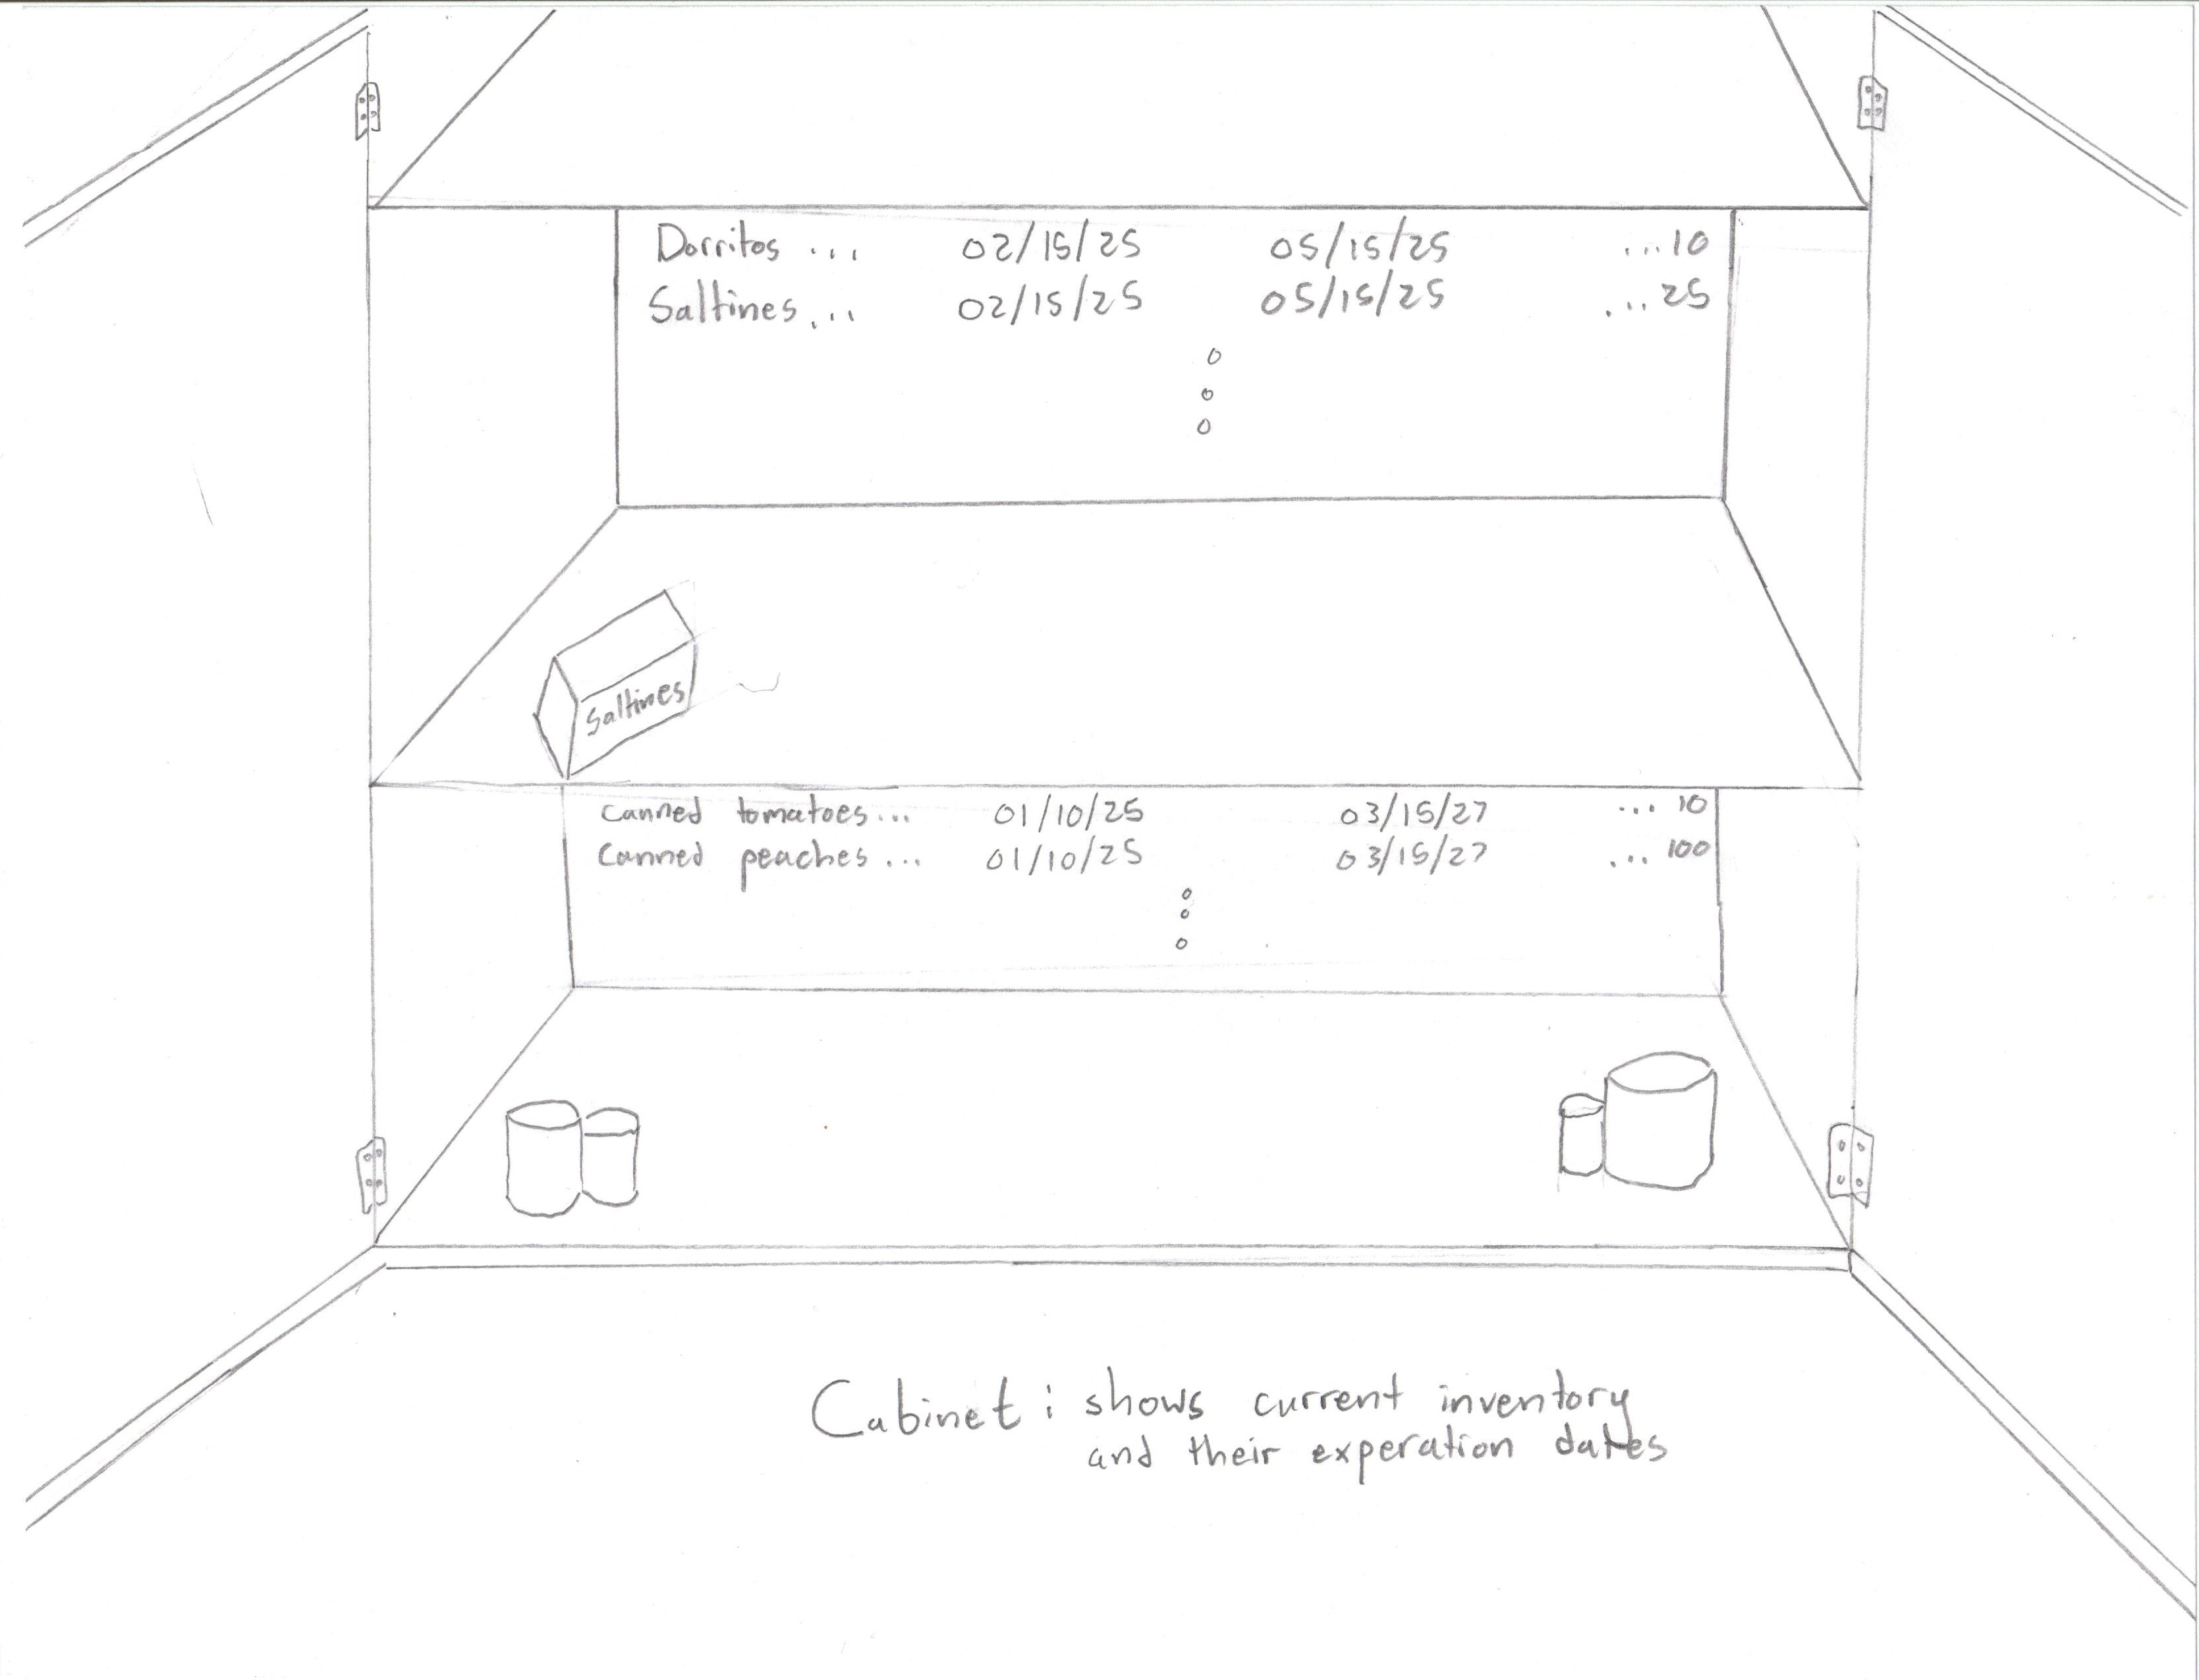 Dorritos ... 02/15/25 05/15/25 ...10
Saltines... 02/15/25 05/15/25 ...25
Saltines
Canned tomatoes... 01/10/25 03/15/27 ... 10
Canned peaches... 01/10/25 03/15/27 ... 100
Cabinet: shows current inventory
and their experation dates